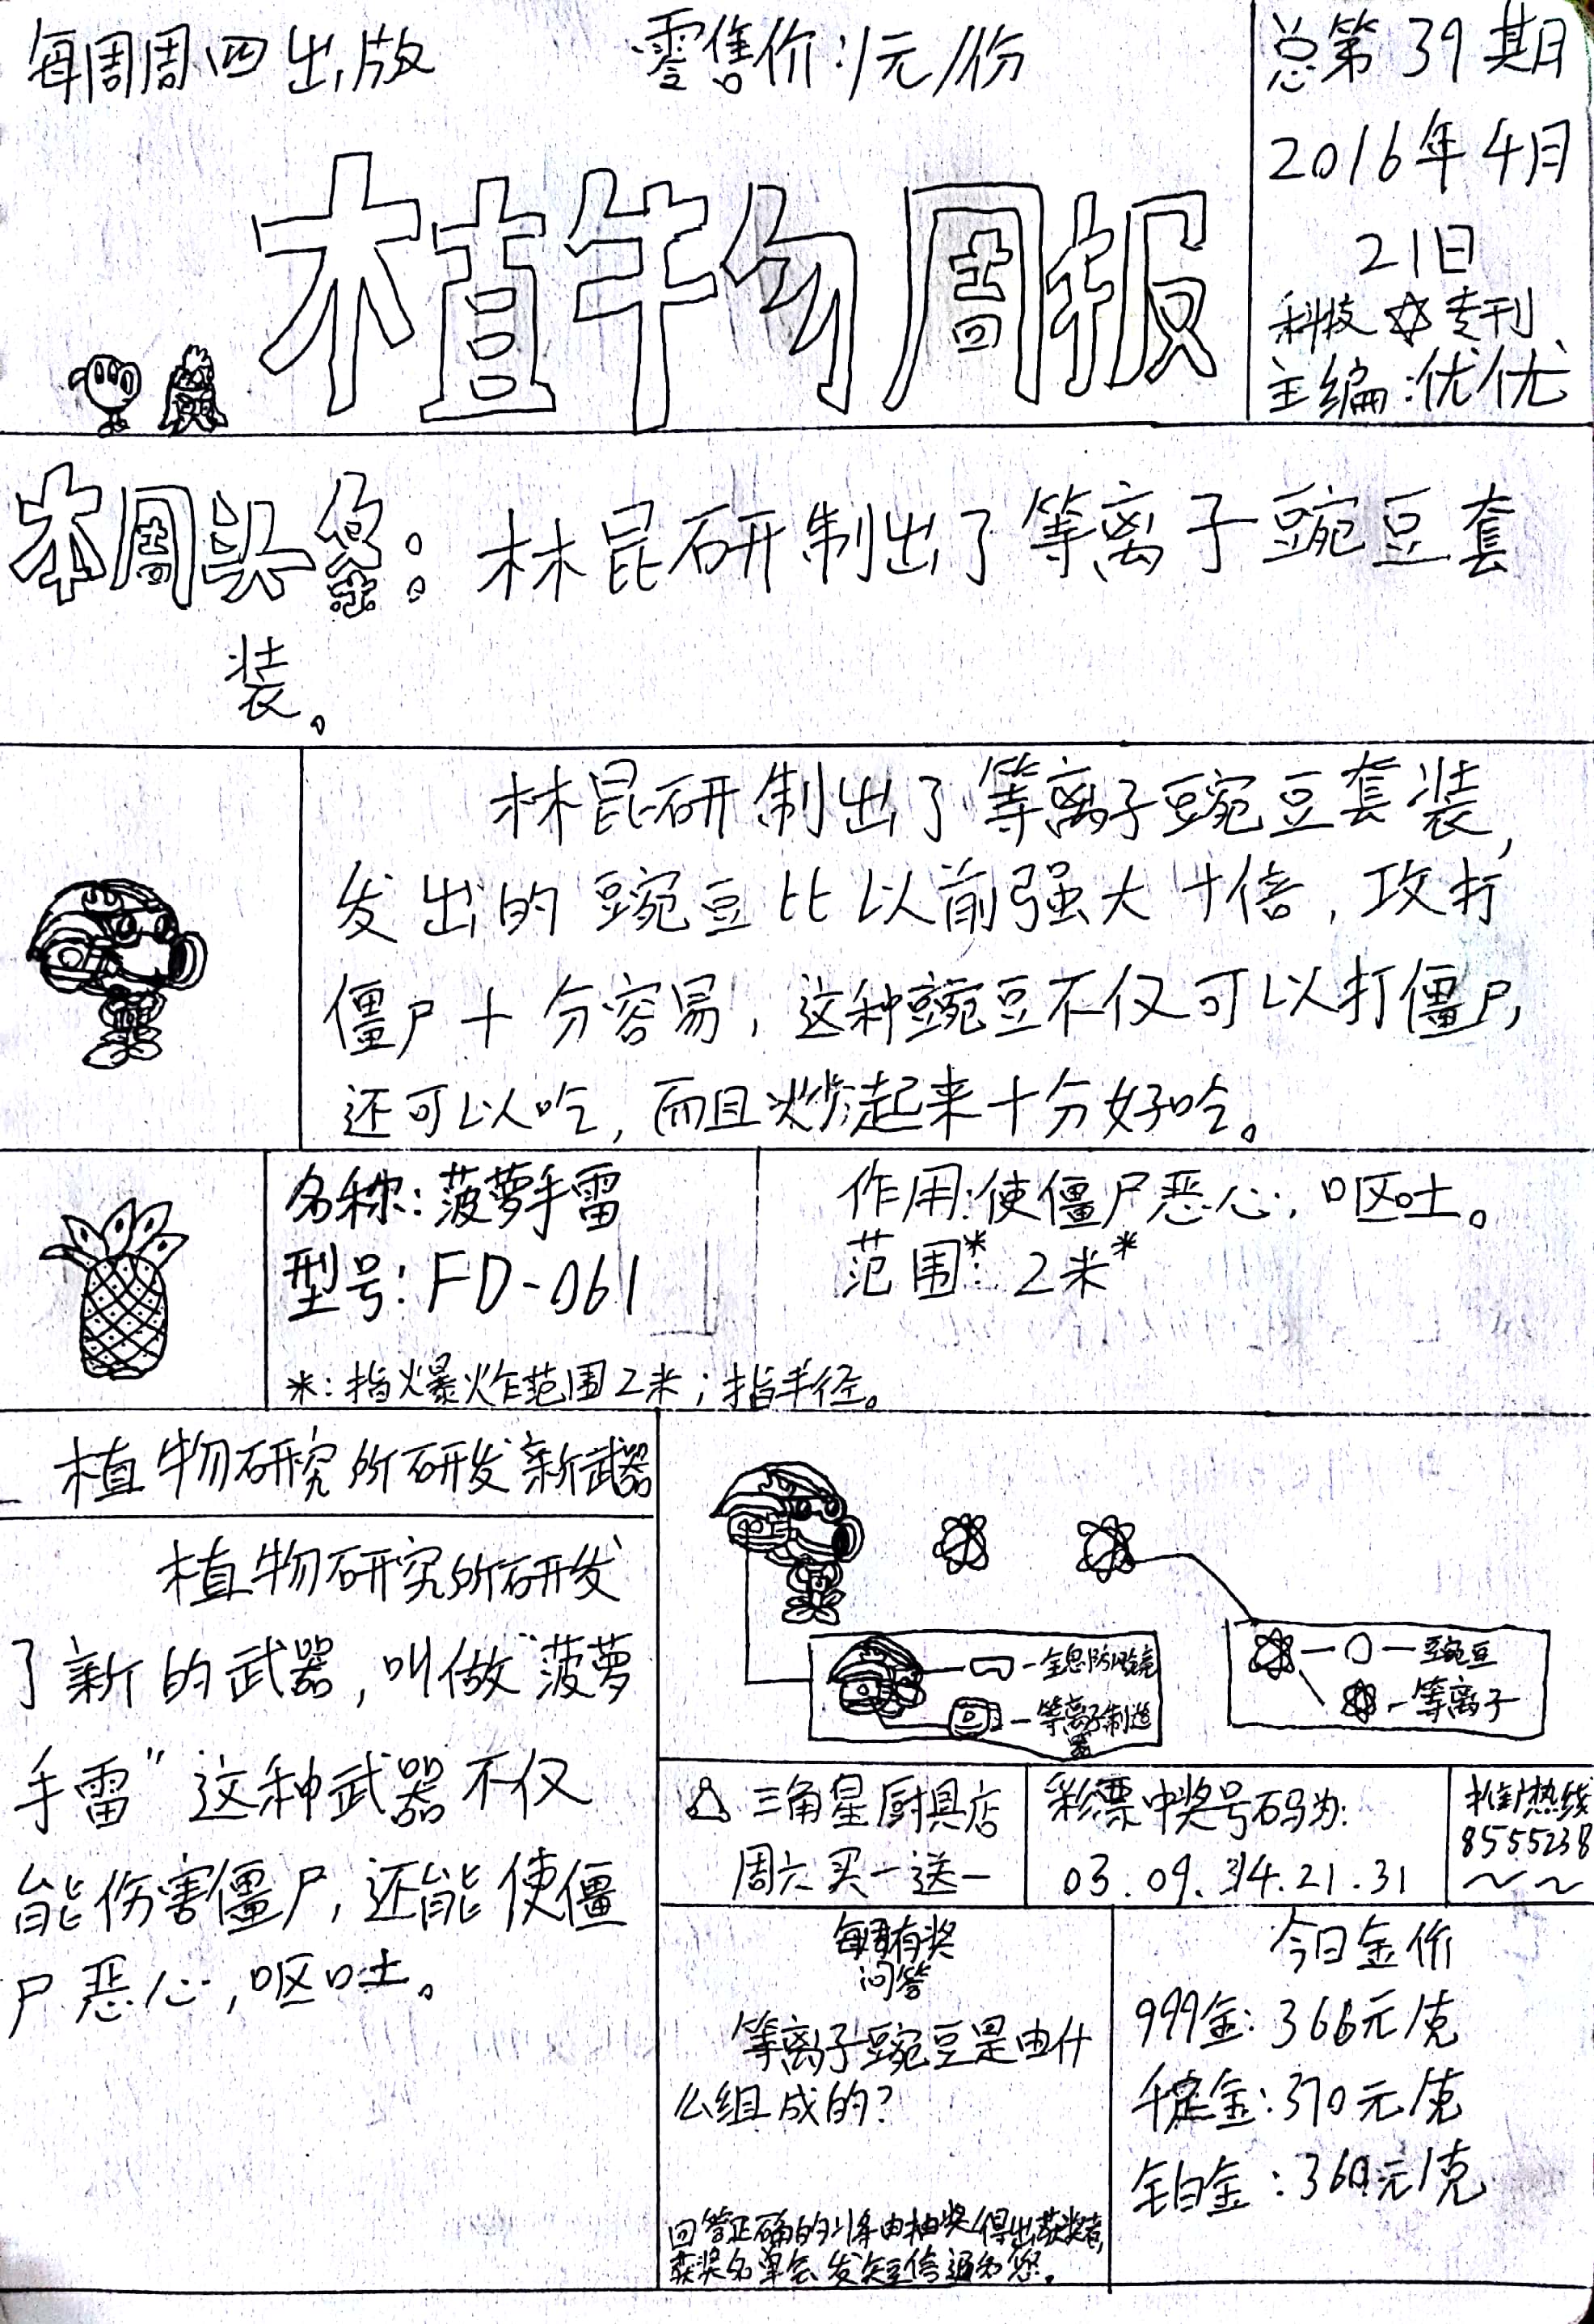 每周周四出版
零售价:1元/份
总第39期
2016年4月
21日
科技☆专刊
主编:优优
植物周报
本周头条:林昆研制出了等离子豌豆套
装。
林昆研制出了等离子豌豆套装,
发出的豌豆比以前强大十倍,攻打
僵尸十分容易,这种豌豆不仅可以打僵尸,
还可以吃,而且炒起来十分好吃。
名称:菠萝手雷
型号:FD-061
作用:使僵尸恶心,呕吐。
范围*:2米*
*:指爆炸范围2米;指半径。
植物研究所研发新武器
植物研究所研发
了新的武器,叫做“菠萝
手雷”这种武器不仅
能伤害僵尸,还能使僵
尸恶心,呕吐。
全息防风镜
等离子制造
器
豌豆
等离子
三角星厨具店
周六买一送一
彩票中奖号码为:
03.09.14.21.31
推广热线
8555238
~~
每周有奖
问答
等离子豌豆是由什
么组成的?
回答正确的将由抽奖得出获奖者,
获奖名单会发短信通知您。
今日金价
999金:366元/克
千足金:370元/克
铂金:360元/克